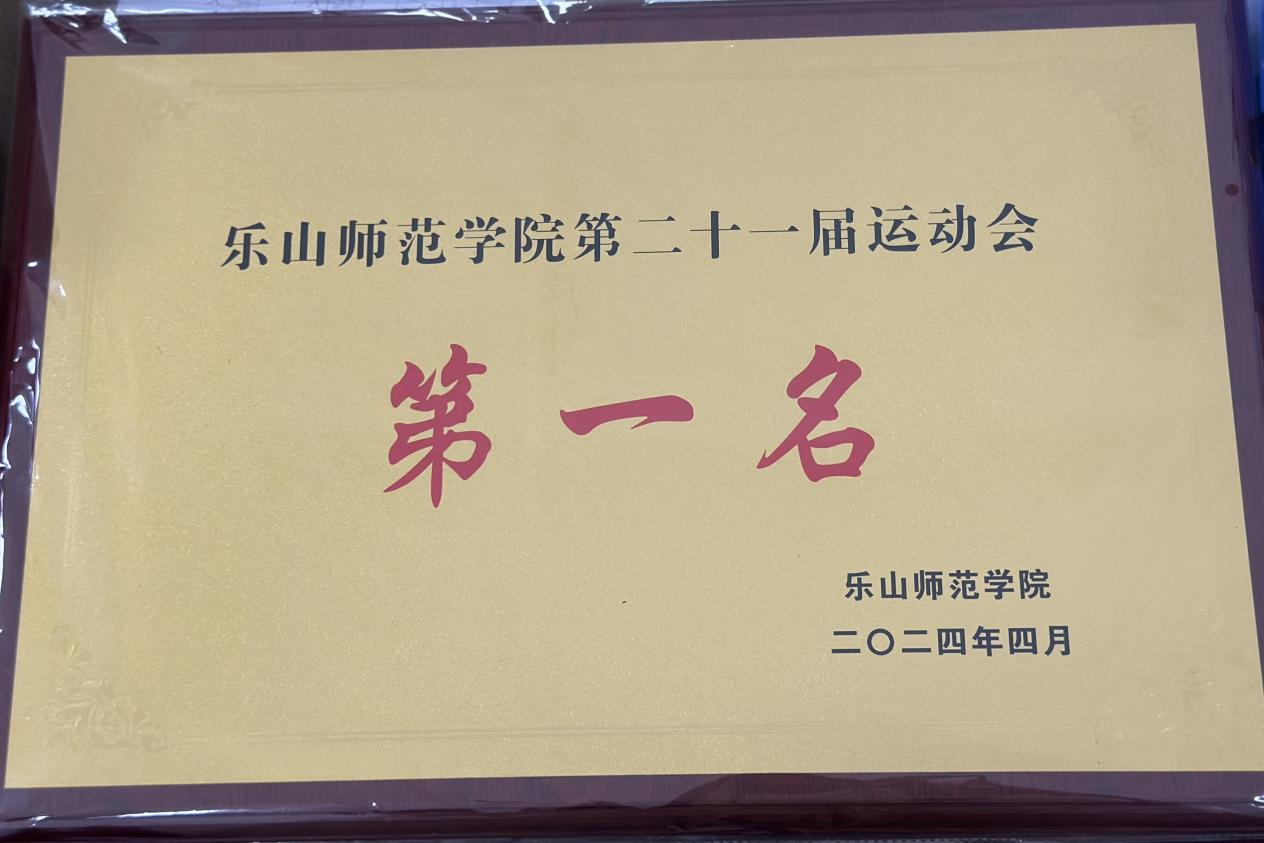 乐山师范学院第二十一届运动会
第一名
乐山师范学院
二〇二四年四月